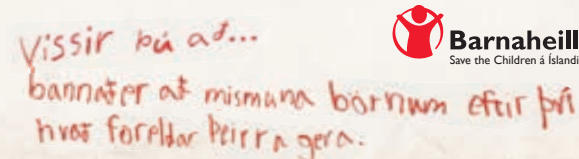 Vissir þú að...
Barnaheill
Save the Children á Íslandi
bannað er að mismuna börnum eftir því
hvað foreldar þeirra gera.